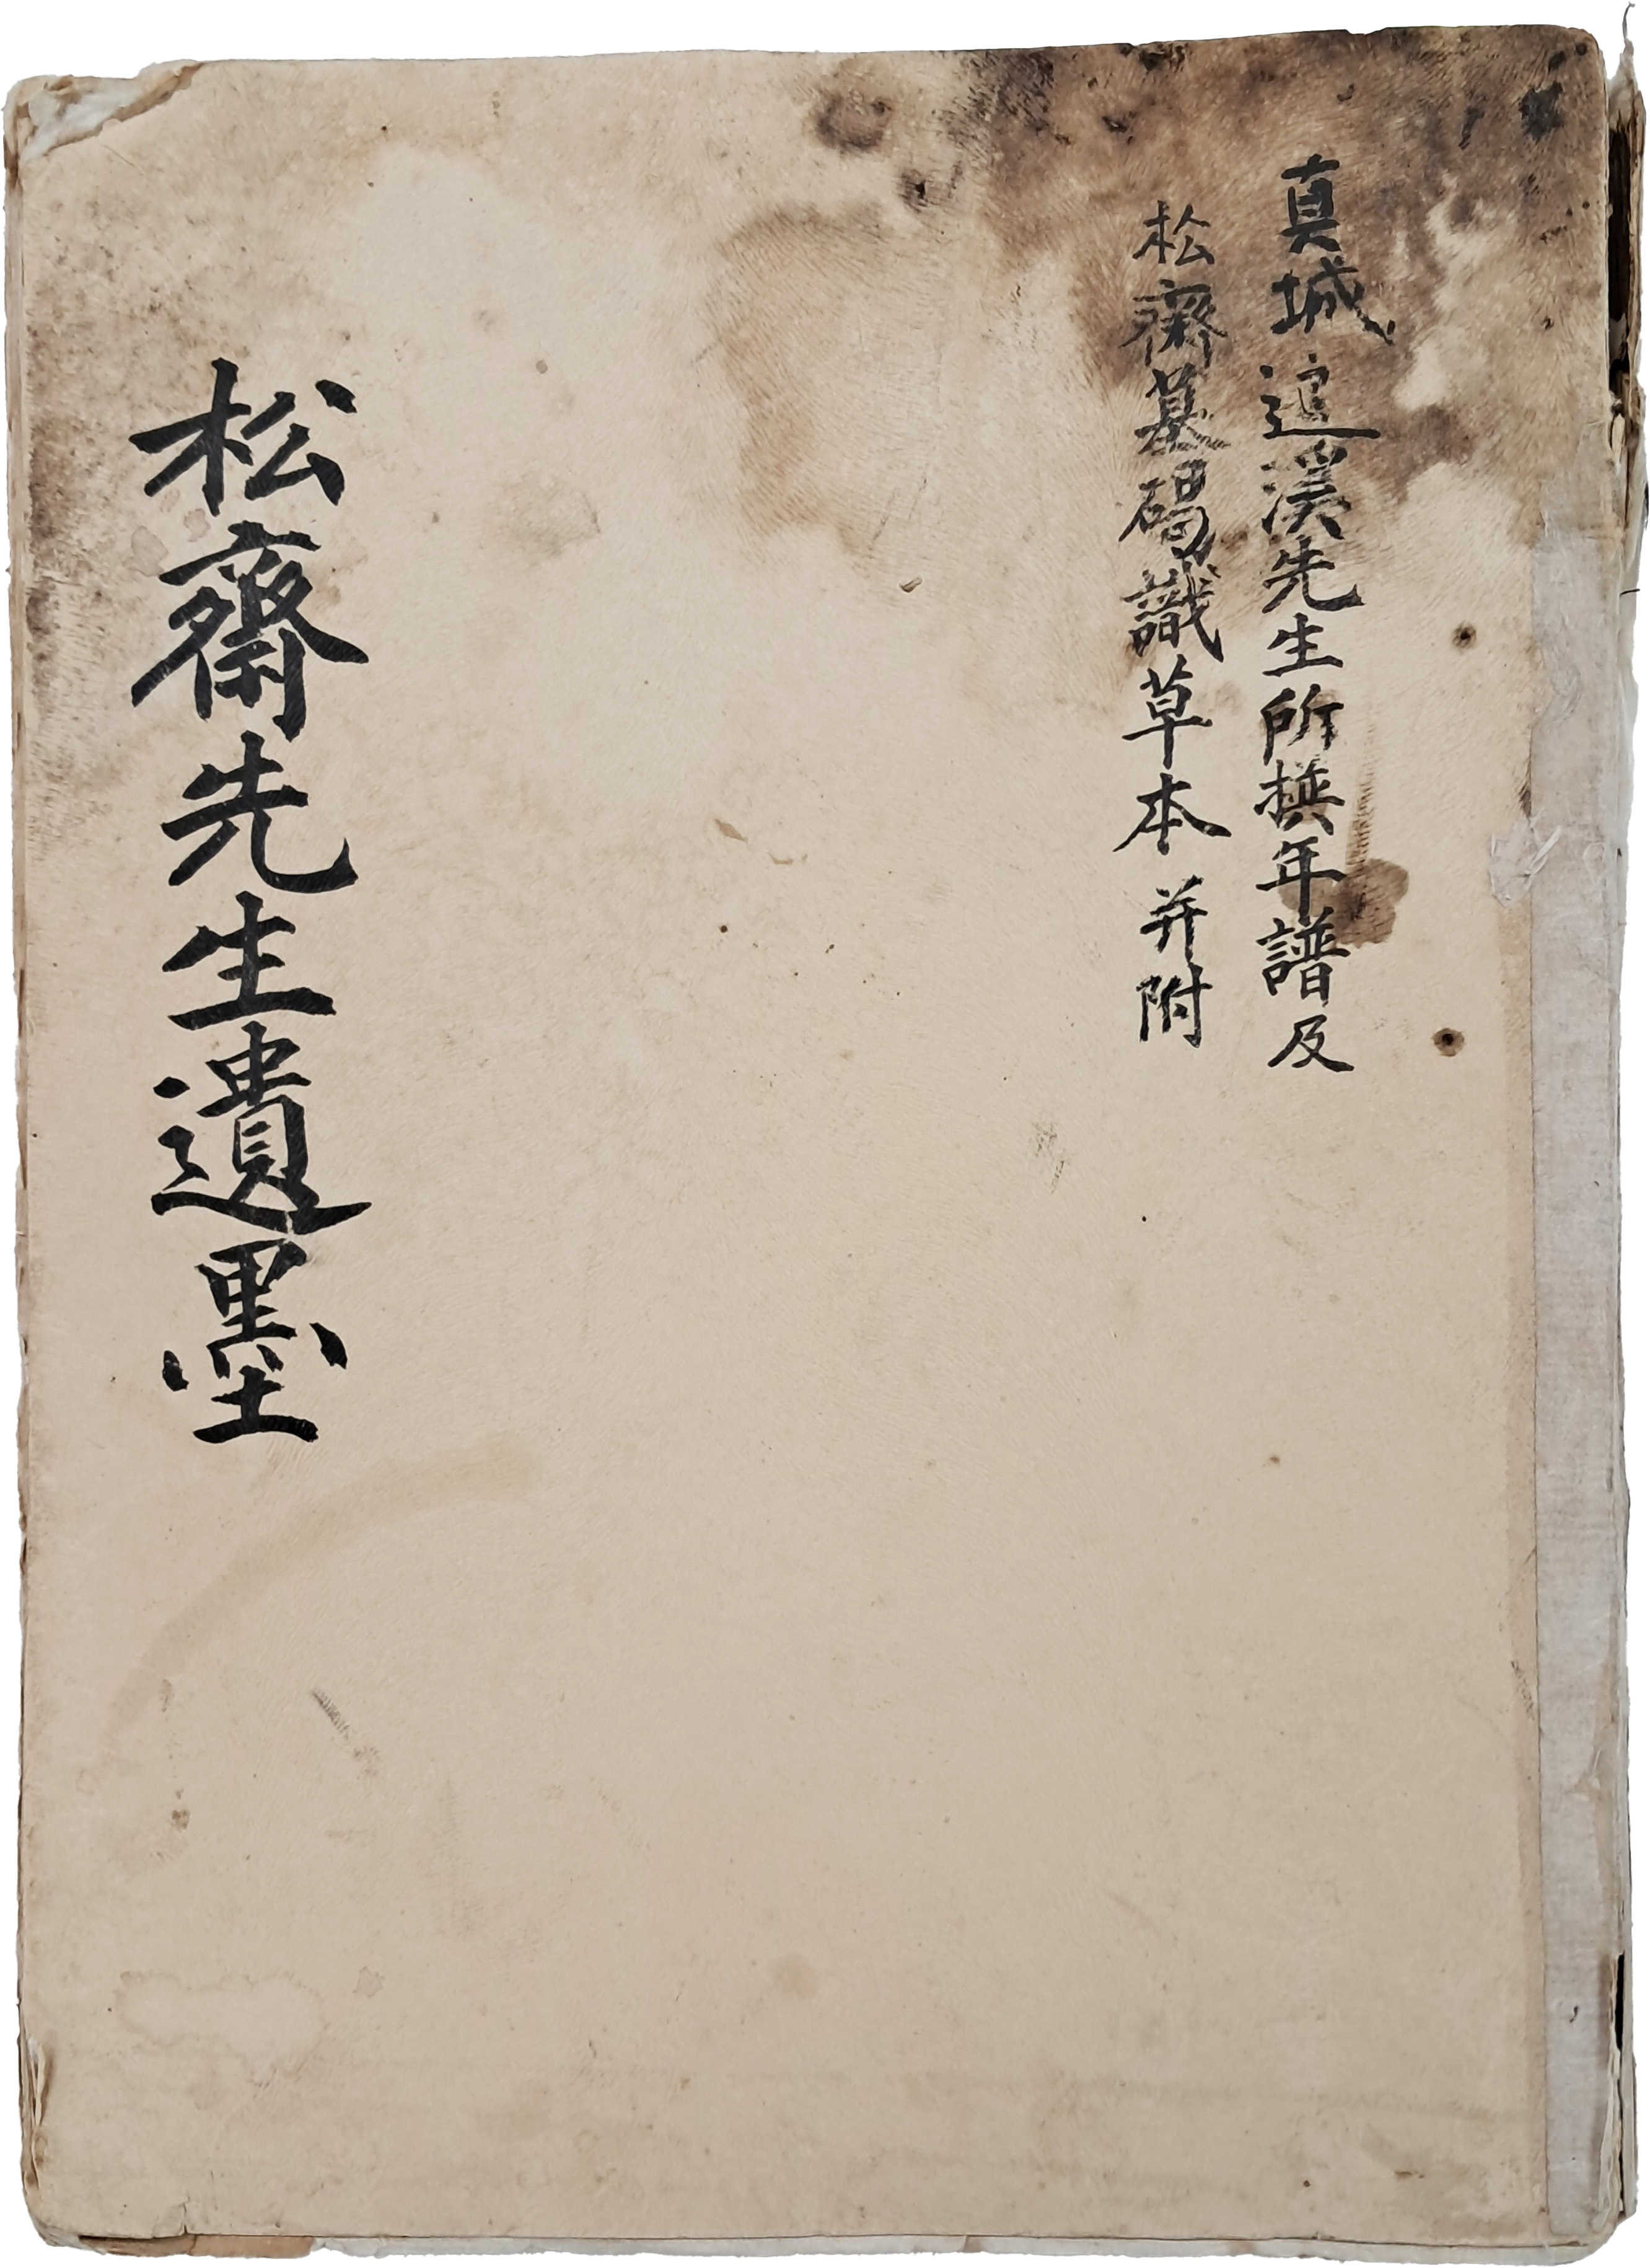 真城 退溪先生所撰年譜及
松齋墓碣識草本 并附
松齋先生遺墨